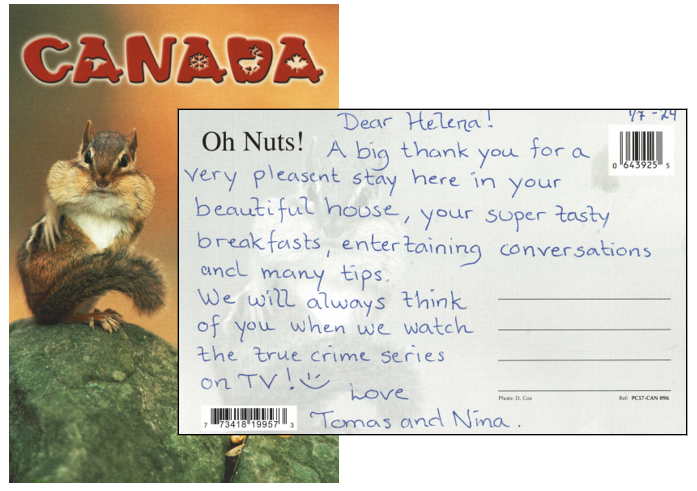 CANADA
Dear Helena!
1/7-24
Oh Nuts!
A big thank you for a
0 643925 5
very pleasent stay here in your
beautiful house, your super tasty
breakfasts, entertaining conversations
and many tips.
We will always think
of you when we watch
the true crime series
on TV! :)
Love
Tomas and Nina.
Photo: D. Cox
Ref: PC57-CAN 096
7 73418 19957 3